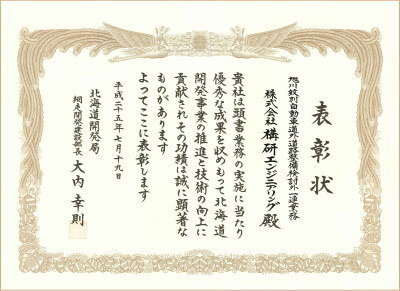 表彰状
旭川紋別自動車道外道路整備検討外一連業務
株式会社 構研エンジニアリング 殿
貴社は頭書業務の実施に当たり
優秀な成果を収めもって北海道
開発事業の推進と技術の向上に
貢献されその功績は誠に顕著な
ものがあります
よってここに表彰します
平成二十五年七月十九日
北海道開発局
網走開発建設部長 大内 幸則